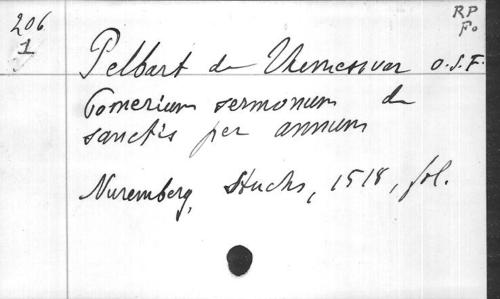 206
1
RP
Fo
Pelbart de Themeswar O.S.F.
Pomerium sermonum de
sanctis per annum
Nuremberg, Stuchs, 1518, fol.